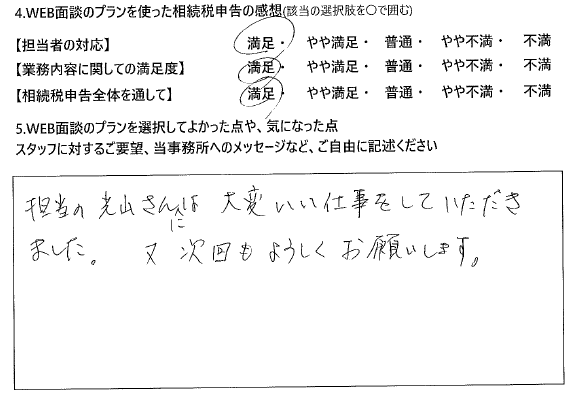 4.WEB面談のプランを使った相続税申告の感想(該当の選択肢を〇で囲む)
【担当者の対応】 満足・ やや満足・ 普通・ やや不満・ 不満
【業務内容に関しての満足度】 満足・ やや満足・ 普通・ やや不満・ 不満
【相続税申告全体を通して】 満足・ やや満足・ 普通・ やや不満・ 不満
5.WEB面談のプランを選択してよかった点や、気になった点
スタッフに対するご要望、当事務所へのメッセージなど、ご自由に記述ください
担当の光山さんには 大変いい仕事をしていただき
ました。 又 次回もようしくお願いします。